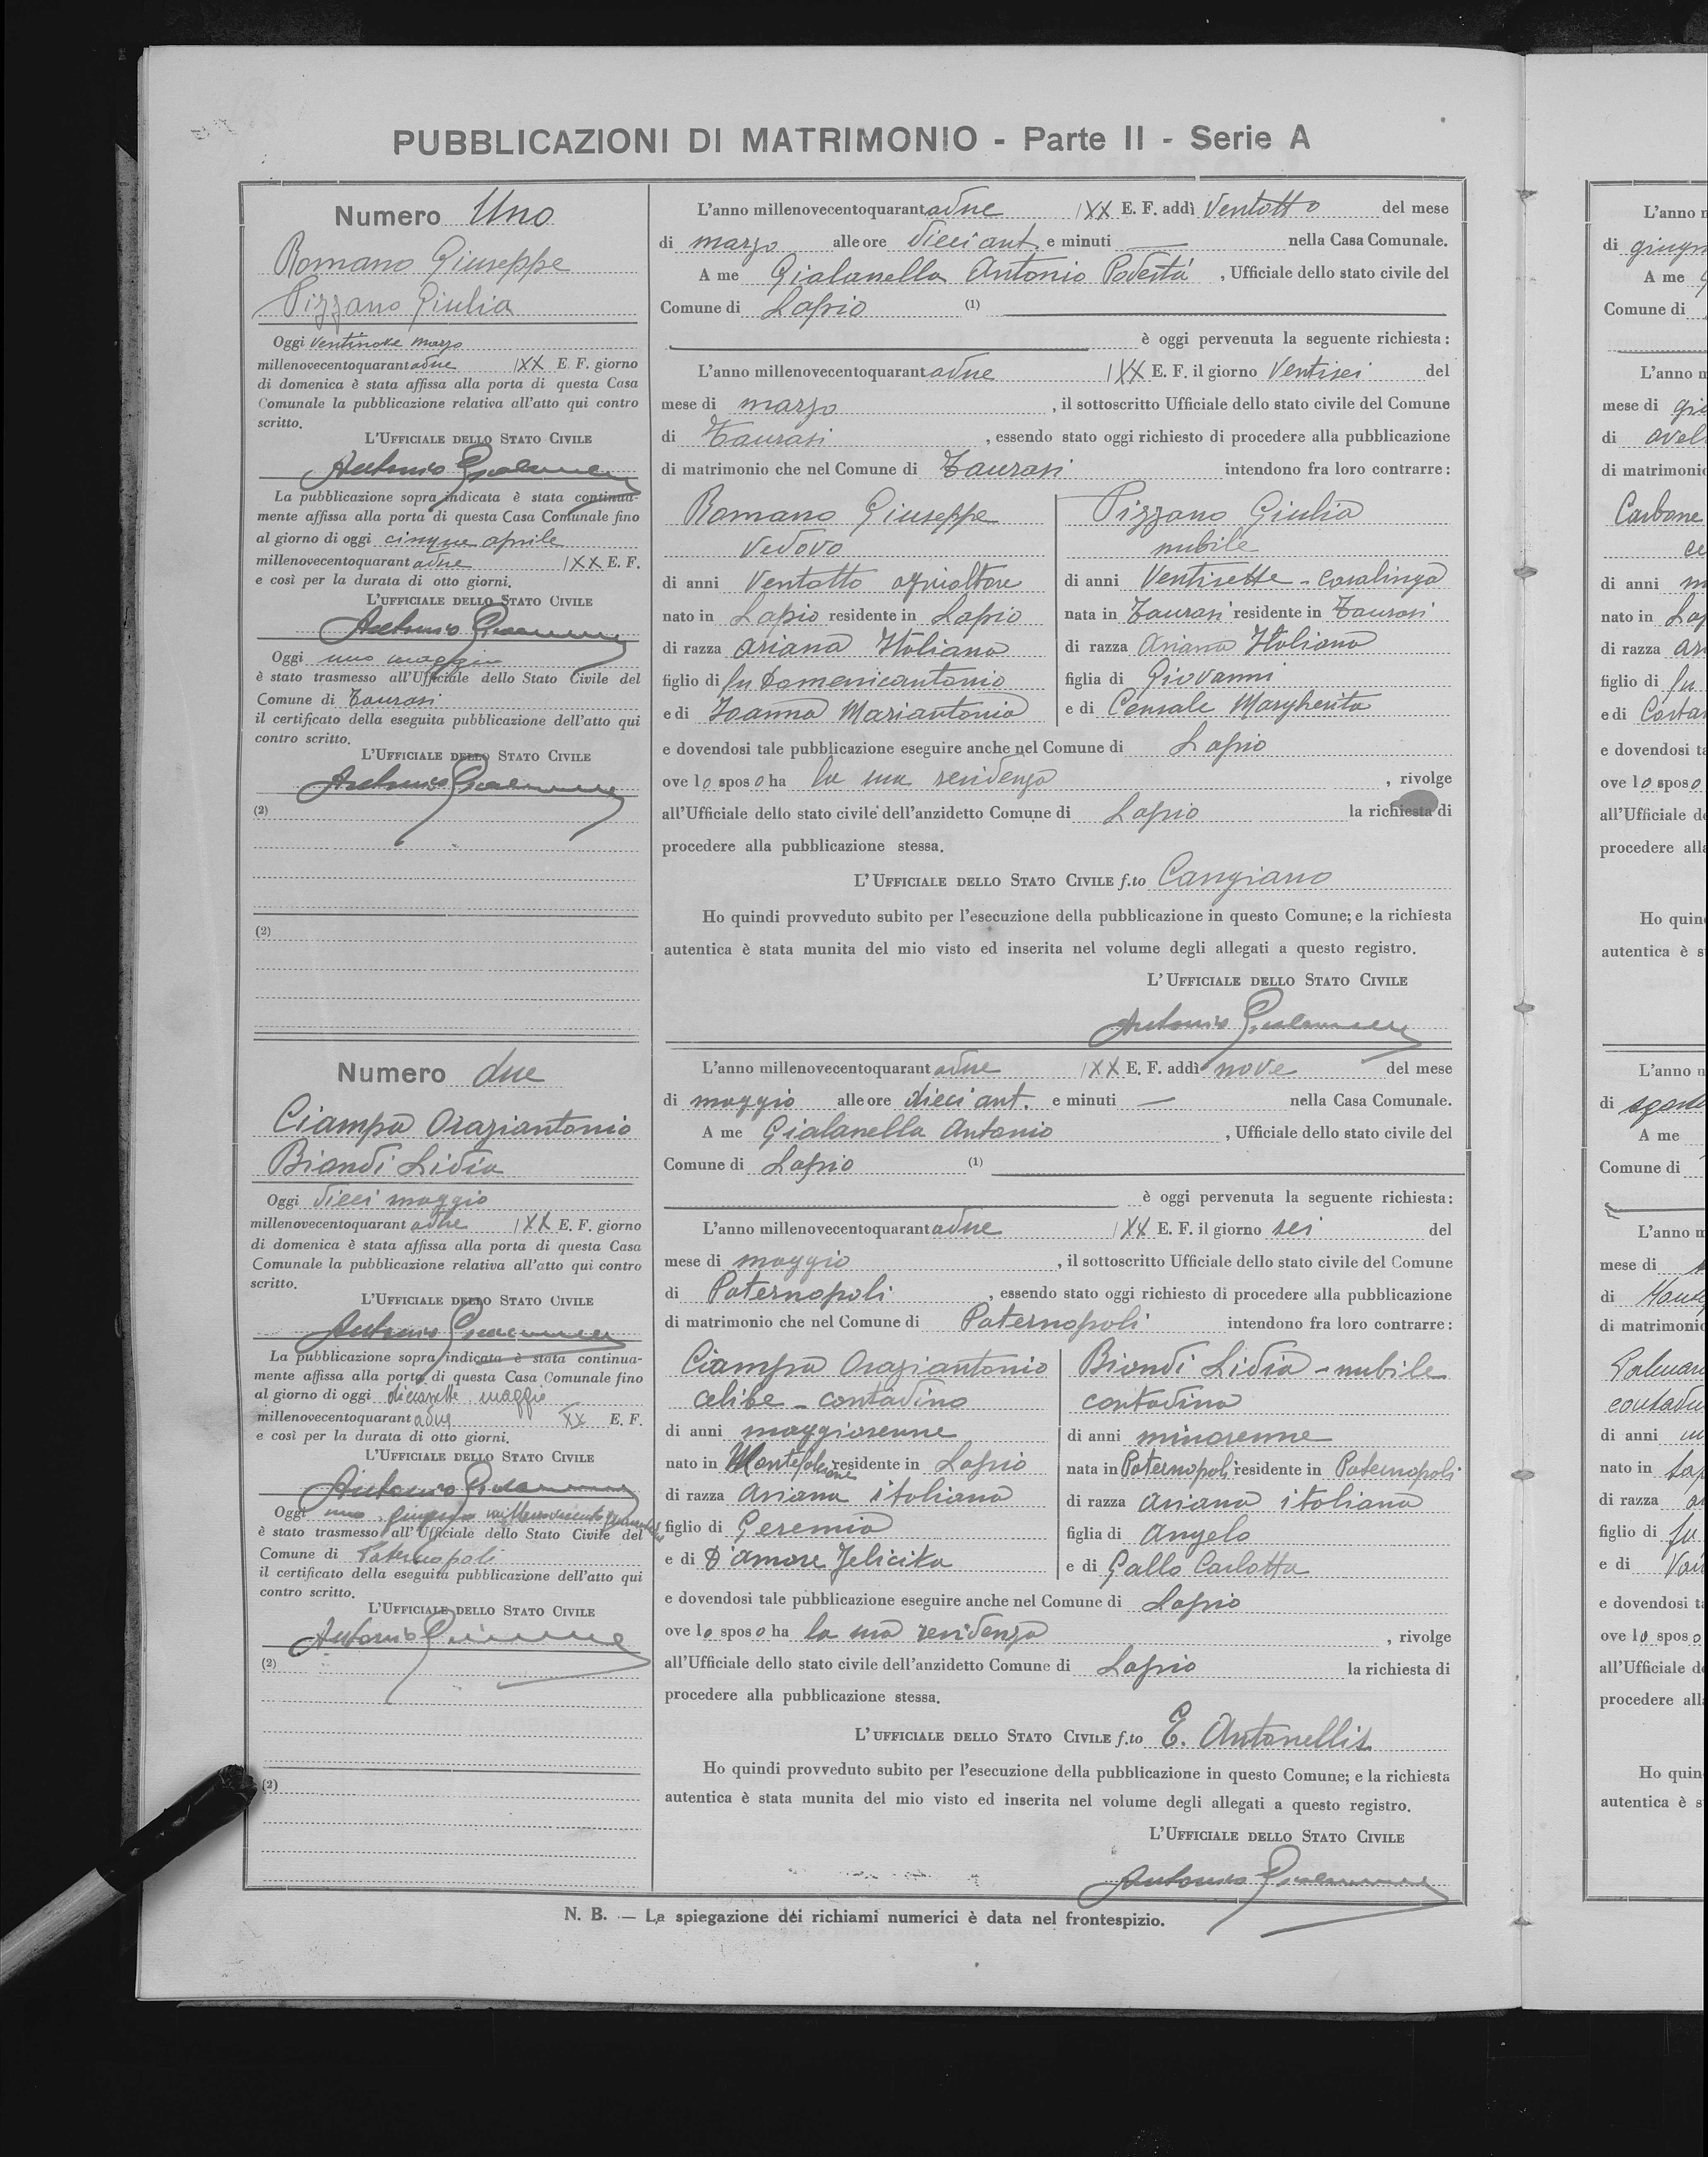 PUBBLICAZIONI DI MATRIMONIO - Parte II - Serie A
Numero Uno
Romano Giuseppe
Pizzano Giulia
Oggi ventinove marzo
millenovecentoquarantadue XX E. F. giorno
di domenica è stata affissa alla porta di questa Casa
Comunale la pubblicazione relativa all'atto qui contro
scritto.
L'UFFICIALE DELLO STATO CIVILE
Antonio
La pubblicazione sopra indicata è stata continua-
mente affissa alla porta di questa Casa Comunale fino
al giorno di oggi cinque aprile
millenovecentoquarantadue XX E. F.
e così per la durata di otto giorni.
L'UFFICIALE DELLO STATO CIVILE
Antonio
Oggi uno maggio
è stato trasmesso all'Ufficiale dello Stato Civile del
Comune di Taurasi
il certificato della eseguita pubblicazione dell'atto qui
contro scritto.
L'UFFICIALE DELLO STATO CIVILE
Antonio
(2)
(2)
L'anno millenovecentoquarantadue XX E. F. addì ventotto del mese
di marzo alle ore dieci ant. e minuti — nella Casa Comunale.
A me Gialanella Antonio Podestà , Ufficiale dello stato civile del
Comune di Lapio (1)
è oggi pervenuta la seguente richiesta:
L'anno millenovecentoquarantadue XX E. F. il giorno ventisei del
mese di marzo , il sottoscritto Ufficiale dello stato civile del Comune
di Taurasi , essendo stato oggi richiesto di procedere alla pubblicazione
di matrimonio che nel Comune di Taurasi intendono fra loro contrarre:
Romano Giuseppe
vedovo
di anni ventotto agricoltore
nato in Lapio residente in Lapio
di razza ariana Italiana
figlio di fu Domenicantonio
e di Ioanna Mariantonia
Pizzano Giulia
nubile
di anni ventisette - casalinga
nata in Taurasi residente in Taurasi
di razza ariana Italiana
figlia di Giovanni
e di Censale Margherita
e dovendosi tale pubblicazione eseguire anche nel Comune di Lapio
ove lo sposo ha la sua residenza , rivolge
all'Ufficiale dello stato civile dell'anzidetto Comune di Lapio la richiesta di
procedere alla pubblicazione stessa.
L'UFFICIALE DELLO STATO CIVILE f.to Cangiano
Ho quindi provveduto subito per l'esecuzione della pubblicazione in questo Comune; e la richiesta
autentica è stata munita del mio visto ed inserita nel volume degli allegati a questo registro.
L'UFFICIALE DELLO STATO CIVILE
Antonio
Numero due
Ciampa Oraziantonio
Biondi Lidia
Oggi dieci maggio
millenovecentoquarantadue XX E. F. giorno
di domenica è stata affissa alla porta di questa Casa
Comunale la pubblicazione relativa all'atto qui contro
scritto.
L'UFFICIALE DELLO STATO CIVILE
Antonio
La pubblicazione sopra indicata è stata continua-
mente affissa alla porta di questa Casa Comunale fino
al giorno di oggi diciasette maggio
millenovecentoquarantadue XX E. F.
e così per la durata di otto giorni.
L'UFFICIALE DELLO STATO CIVILE
Antonio
Oggi uno giugno
è stato trasmesso all'Ufficiale dello Stato Civile del
Comune di Paternopoli
il certificato della eseguita pubblicazione dell'atto qui
contro scritto.
L'UFFICIALE DELLO STATO CIVILE
Antonio
(2)
(2)
L'anno millenovecentoquarantadue XX E. F. addì nove del mese
di maggio alle ore dieci ant. e minuti — nella Casa Comunale.
A me Gialanella Antonio , Ufficiale dello stato civile del
Comune di Lapio (1)
è oggi pervenuta la seguente richiesta:
L'anno millenovecentoquarantadue XX E. F. il giorno sei del
mese di maggio , il sottoscritto Ufficiale dello stato civile del Comune
di Paternopoli , essendo stato oggi richiesto di procedere alla pubblicazione
di matrimonio che nel Comune di Paternopoli intendono fra loro contrarre:
Ciampa Oraziantonio
celibe - contadino
di anni maggiorenne
nato in Montefalcione residente in Lapio
di razza ariana italiana
figlio di Geremia
e di D'amore Felicita
Biondi Lidia - nubile
contadina
di anni minorenne
nata in Paternopoli residente in Paternopoli
di razza ariana italiana
figlia di Angelo
e di Gallo Carlotta
e dovendosi tale pubblicazione eseguire anche nel Comune di Lapio
ove lo sposo ha la sua residenza , rivolge
all'Ufficiale dello stato civile dell'anzidetto Comune di Lapio la richiesta di
procedere alla pubblicazione stessa.
L'UFFICIALE DELLO STATO CIVILE f.to E. Antonellis
Ho quindi provveduto subito per l'esecuzione della pubblicazione in questo Comune; e la richiesta
autentica è stata munita del mio visto ed inserita nel volume degli allegati a questo registro.
L'UFFICIALE DELLO STATO CIVILE
Antonio
N. B. — La spiegazione dei richiami numerici è data nel frontespizio.
L'anno
di
A me
Comune di
L'anno
mese di
di
di matrimonio
Carbone
di anni
nato in
di razza
figlio di fu
e di
e dovendosi
ove lo sposo
all'Ufficiale
procedere
Ho
autentica è
L'anno
di
A me
Comune di
L'anno
mese di
di
di matrimonio
di anni
nato in
di razza
figlio di fu
e di
e dovendosi
ove lo sposo
all'Ufficiale
procedere
Ho
autentica è